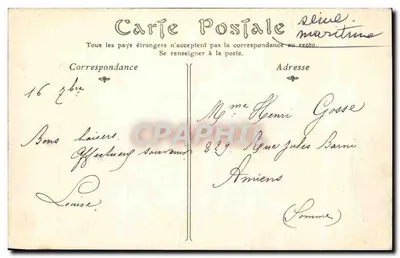 Carte Postale
seine
maritime
Tous les pays étrangers n'acceptent pas la correspondance au recto.
Se renseigner à la poste.
Correspondance
Adresse
16 Xbre
Bons baisers.
Affectueux souvenir
Louise
Mme Henri Gosse
329 Rue Jules Barni
Amiens
(Somme)
CARTOPHILIE